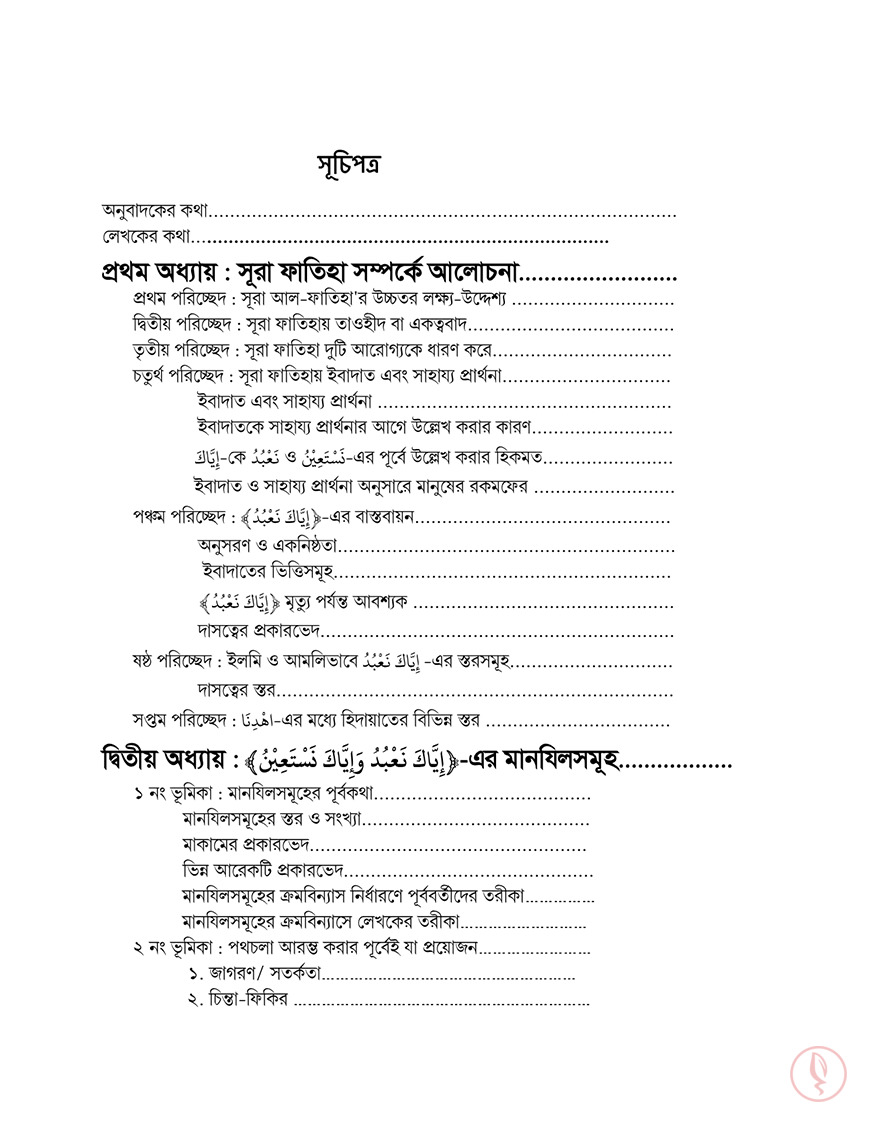 সূচিপত্র
অনুবাদকের কথা.....................................................................................
লেখকের কথা..........................................................................
প্রথম অধ্যায় : সূরা ফাতিহা সম্পর্কে আলোচনা...........................
প্রথম পরিচ্ছেদ : সূরা আল-ফাতিহা'র উচ্চতর লক্ষ্য-উদ্দেশ্য ..............................
দ্বিতীয় পরিচ্ছেদ : সূরা ফাতিহায় তাওহীদ বা একত্ববাদ......................................
তৃতীয় পরিচ্ছেদ : সূরা ফাতিহা দুটি আরোগ্যকে ধারণ করে.................................
চতুর্থ পরিচ্ছেদ : সূরা ফাতিহায় ইবাদাত এবং সাহায্য প্রার্থনা...............................
ইবাদাত এবং সাহায্য প্রার্থনা ......................................................
ইবাদাতকে সাহায্য প্রার্থনার আগে উল্লেখ করার কারণ..........................
إِيَّاكَ-কে نَعْبُدُ ও نَسْتَعِيْنُ-এর পূর্বে উল্লেখ করার হিকমত........................
ইবাদাত ও সাহায্য প্রার্থনা অনুসারে মানুষের রকমফের ..........................
পঞ্চম পরিচ্ছেদ : ﴿إِيَّاكَ نَعْبُدُ﴾-এর বাস্তবায়ন...............................................
অনুসরণ ও একনিষ্ঠতা..............................................................
ইবাদাতের ভিত্তিসমূহ..............................................................
﴿إِيَّاكَ نَعْبُدُ﴾ মৃত্যু পর্যন্ত আবশ্যক ................................................
দাসত্বের প্রকারভেদ.................................................................
ষষ্ঠ পরিচ্ছেদ : ইলমি ও আমলিভাবে إِيَّاكَ نَعْبُدُ -এর স্তরসমূহ..............................
দাসত্বের স্তর.........................................................................
সপ্তম পরিচ্ছেদ : اهْدِنَا-এর মধ্যে হিদায়াতের বিভিন্ন স্তর ..................................
দ্বিতীয় অধ্যায় : ﴿إِيَّاكَ نَعْبُدُ وَإِيَّاكَ نَسْتَعِيْنُ﴾-এর মানযিলসমূহ..................
১ নং ভূমিকা : মানযিলসমূহের পূর্বকথা........................................
মানযিলসমূহের স্তর ও সংখ্যা..........................................
মাকামের প্রকারভেদ...................................................
ভিন্ন আরেকটি প্রকারভেদ..............................................
মানযিলসমূহের ক্রমবিন্যাস নির্ধারণে পূর্ববর্তীদের তরীকা...............
মানযিলসমূহের ক্রমবিন্যাসে লেখকের তরীকা...........................
২ নং ভূমিকা : পথচলা আরম্ভ করার পূর্বেই যা প্রয়োজন........................
১. জাগরণ/ সতর্কতা.....................................................
২. চিন্তা-ফিকির ..............................................................